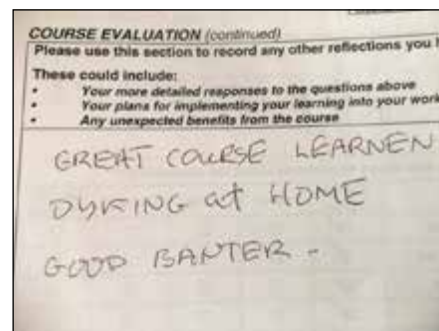 COURSE EVALUATION (continued)
Please use this section to record any other reflections you
These could include:
• Your more detailed responses to the questions above
• Your plans for implementing your learning into your work
• Any unexpected benefits from the course
GREAT COURSE LEARNEN
at HOME
GOOD BANTER..